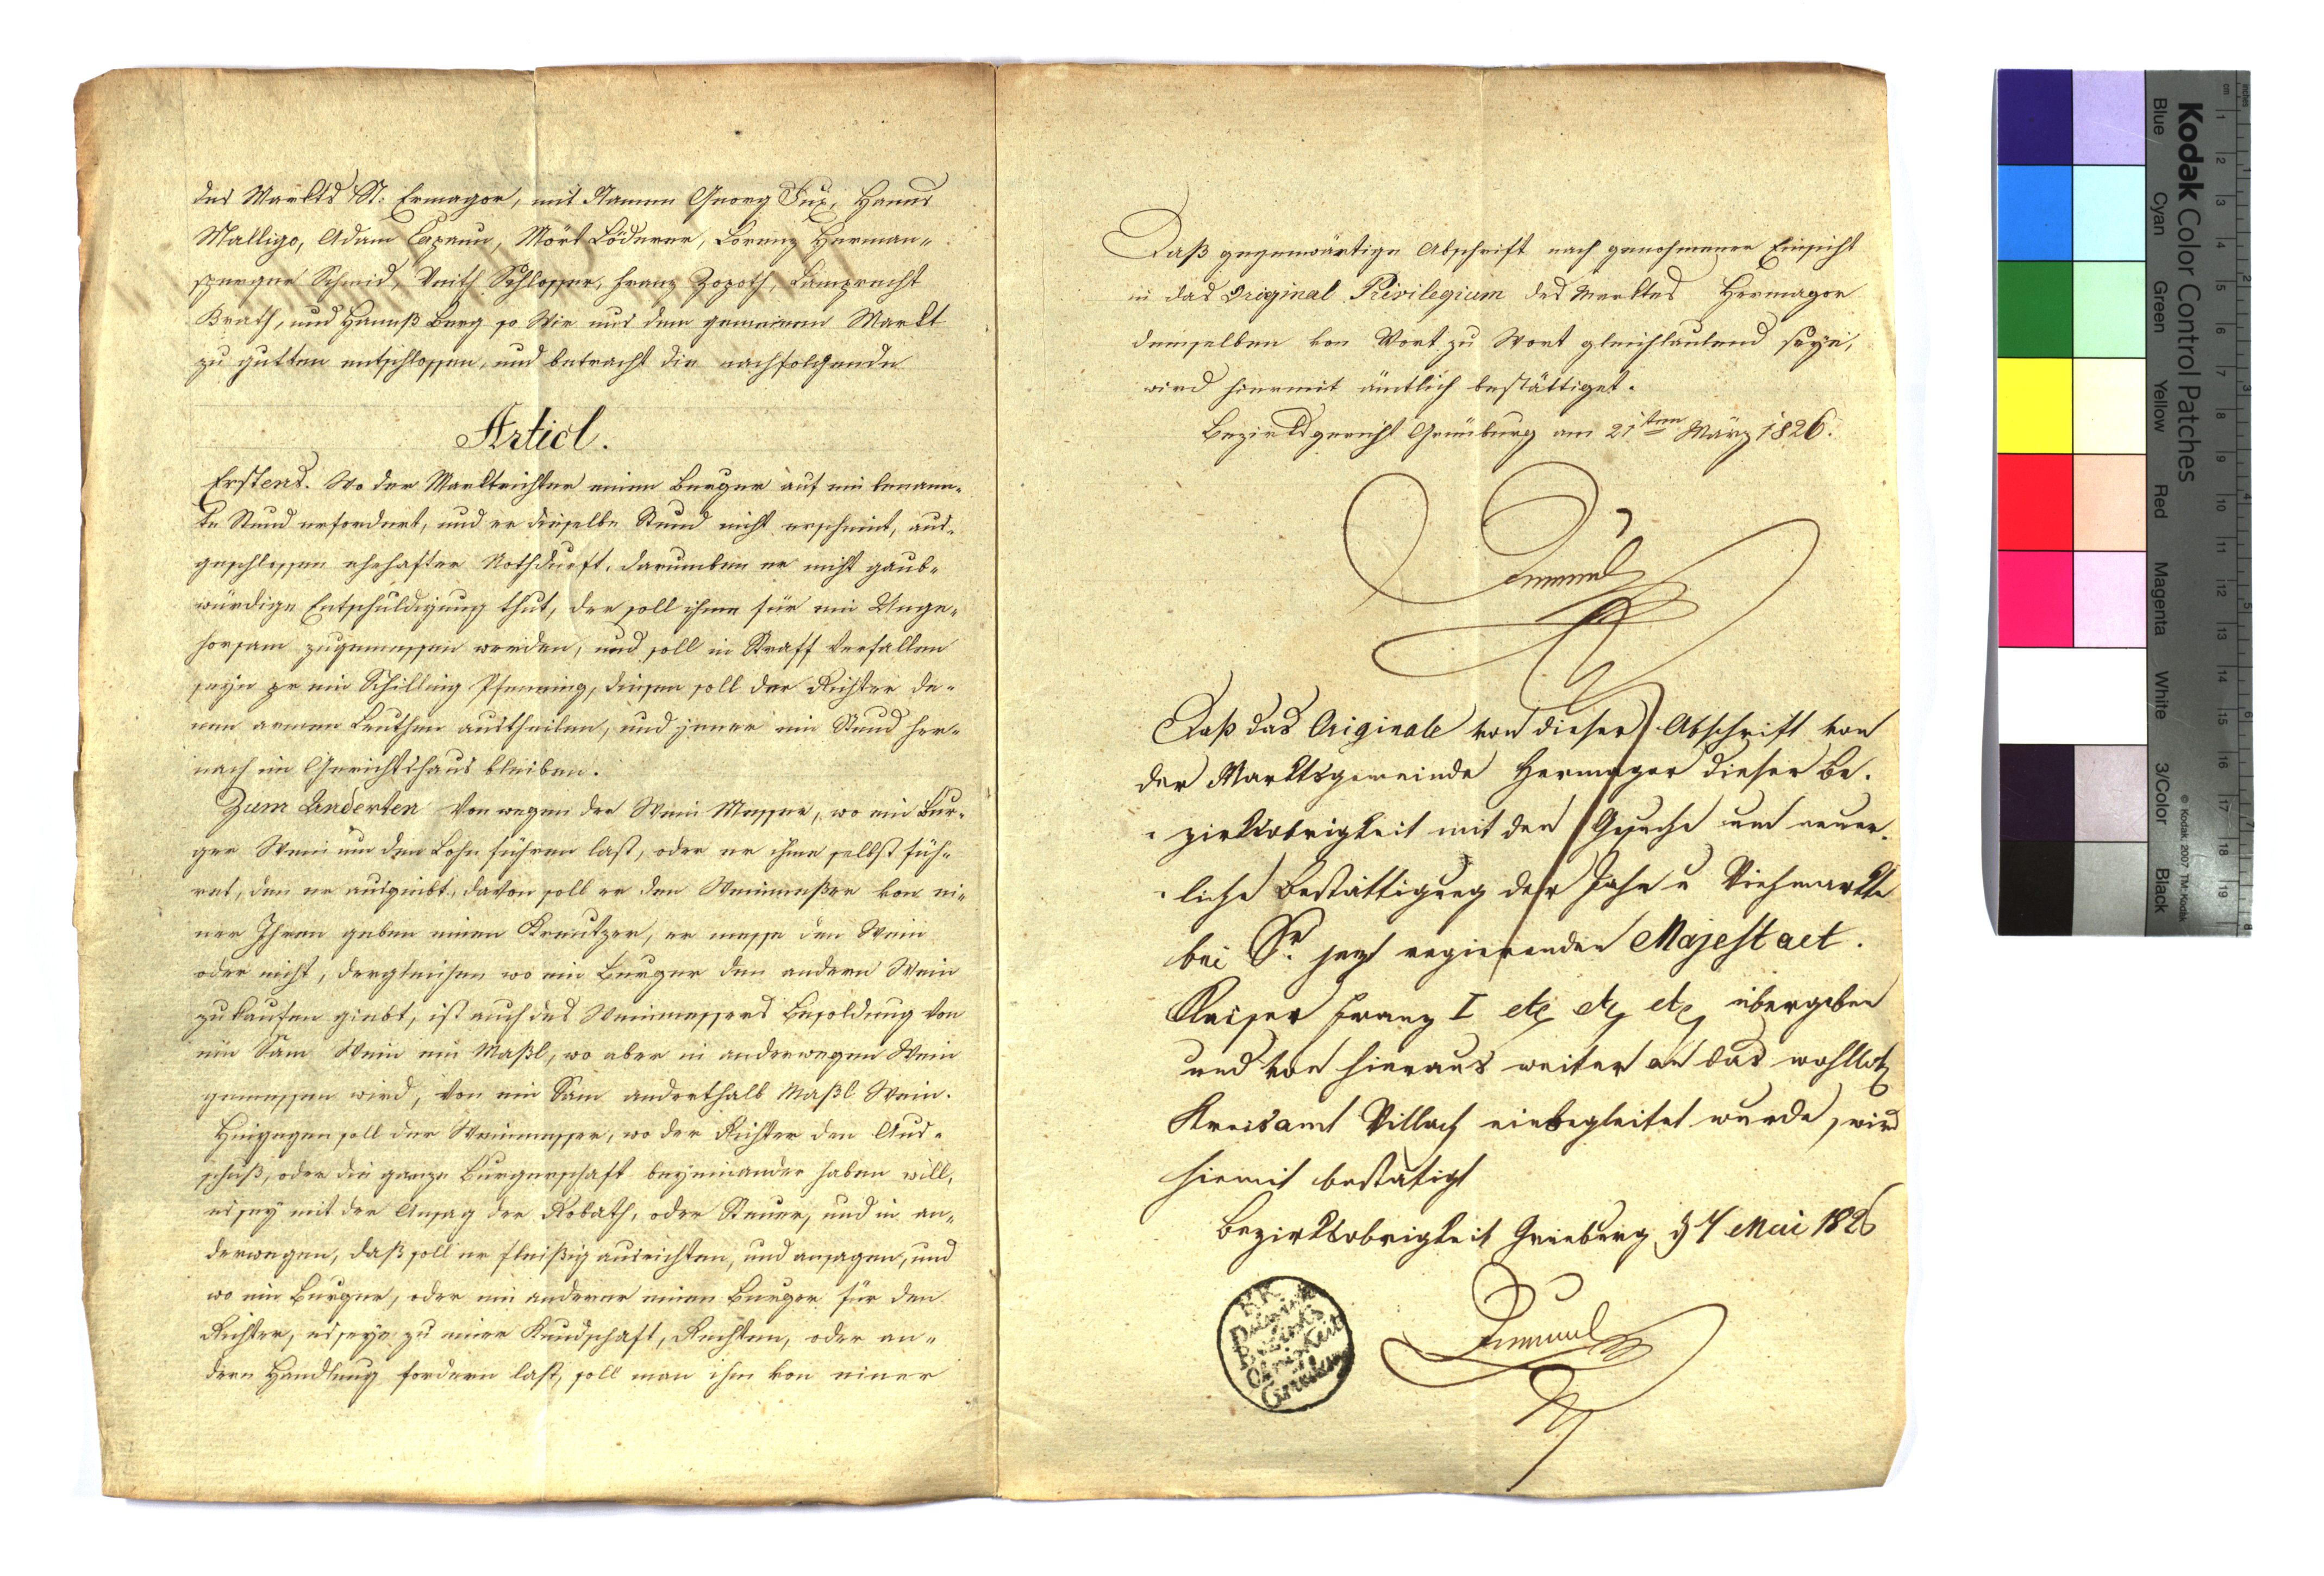 des Markts St. Ermagor, mit Namen Georg Fux, Hanns
Malligo, Adam Capaun, Mört Löderer, Lorenz Herman-
sperger Schmid, Veith Schlosser, Franz Zopoth, Lamprecht
Brath, und Hannß Berg so Wir uns dem gemeinen Markt
zu gutten entschlossen, und betracht die nachfolgende
Articl.
Erstens. Wo der Marktrichter einen Burger auf ein benann-
te Stund erfordert, und er dieselbe Stund nicht erscheint, aus-
geschlossen ehehafter Nothdurft, darumben er nicht gaub-
würdige Entschuldigung thut, der soll ihme für ein Unge-
horsam zugemessen werden, und soll in Straff verfallen
seyn pr ein Schilling Pfenning, diesen soll der Richter de-
nen armen Leuthen austheilen, und jener ein Stund her-
nach im Gerichtshaus bleiben.
Zum Anderten Von wegen der Wein Messer, wo ein Bur-
ger Wein um den Lohn führen last, oder er ihme selbst füh-
ret, den er ausgiebt, davon soll er den Weinmeßer von ei-
ner Ihren geben einen Kreutzer, er messe den Wein
oder nicht, dergleichen wo ein Burger dem andern Wein
zukaufen giebt, ist auch des Weinmessers Besoldung von
ein Sam Wein ein Maßl, wo aber in anderwegen Wein
gemessen wird, von ein Sam anderthalb Maßl Wein.
Hingegen soll der Weinmesser, wo der Richter den Aus-
schuß, oder die ganze Burgerschaft beyeinander haben will,
es sey mit der Ansag der Robath, oder Steuer, und in an-
derwegen, daß soll er fleißig ausrichten, und ansagen, und
wo ein Burger, oder ein anderer einen Burger für den
Richter, es seye zu einer Kundschaft, Rechten, oder an-
dern Handlung fordern last, soll man ihm von einer
Daß gegenwärtige Abschrift nach genohmener Einsicht
in das Original Privilegium des Marktes Hermagor
demselben von Wort zu Wort gleichlautend seye,
wird hiermit ämtlich bestättiget.
Bezirksgericht Grünburg am 21ten März 1826.
Daß das Originale von dieser Abschrift von
der Marktsgemeinde Hermagor dieser Be-
zirksobrigkeit mit den Gesuche um neuer-
liche Bestättigung der Jahr u Viehmarkte
bei Sr. jezt regierenden Majestaet.
Kaiser Franz I etc etc etc, übergeben
und von hieraus weiter an das wohllob
Kreisamt Villach einbegleitet wurde, wird
hiemit bestätigt
Bezirksobrigkeit Grünburg d 4 Mai 1826
KK
Bezirks
Obrigkeit
Kodak Color Control Patches
Blue Cyan Green Yellow Red Magenta White 3/Color Black
© Kodak, 2007 TM: Kodak
cm 1 2 3 4 5 6 7 8 9 10 11 12 13 14 15 16 17 18 19
inches 1 2 3 4 5 6 7 8